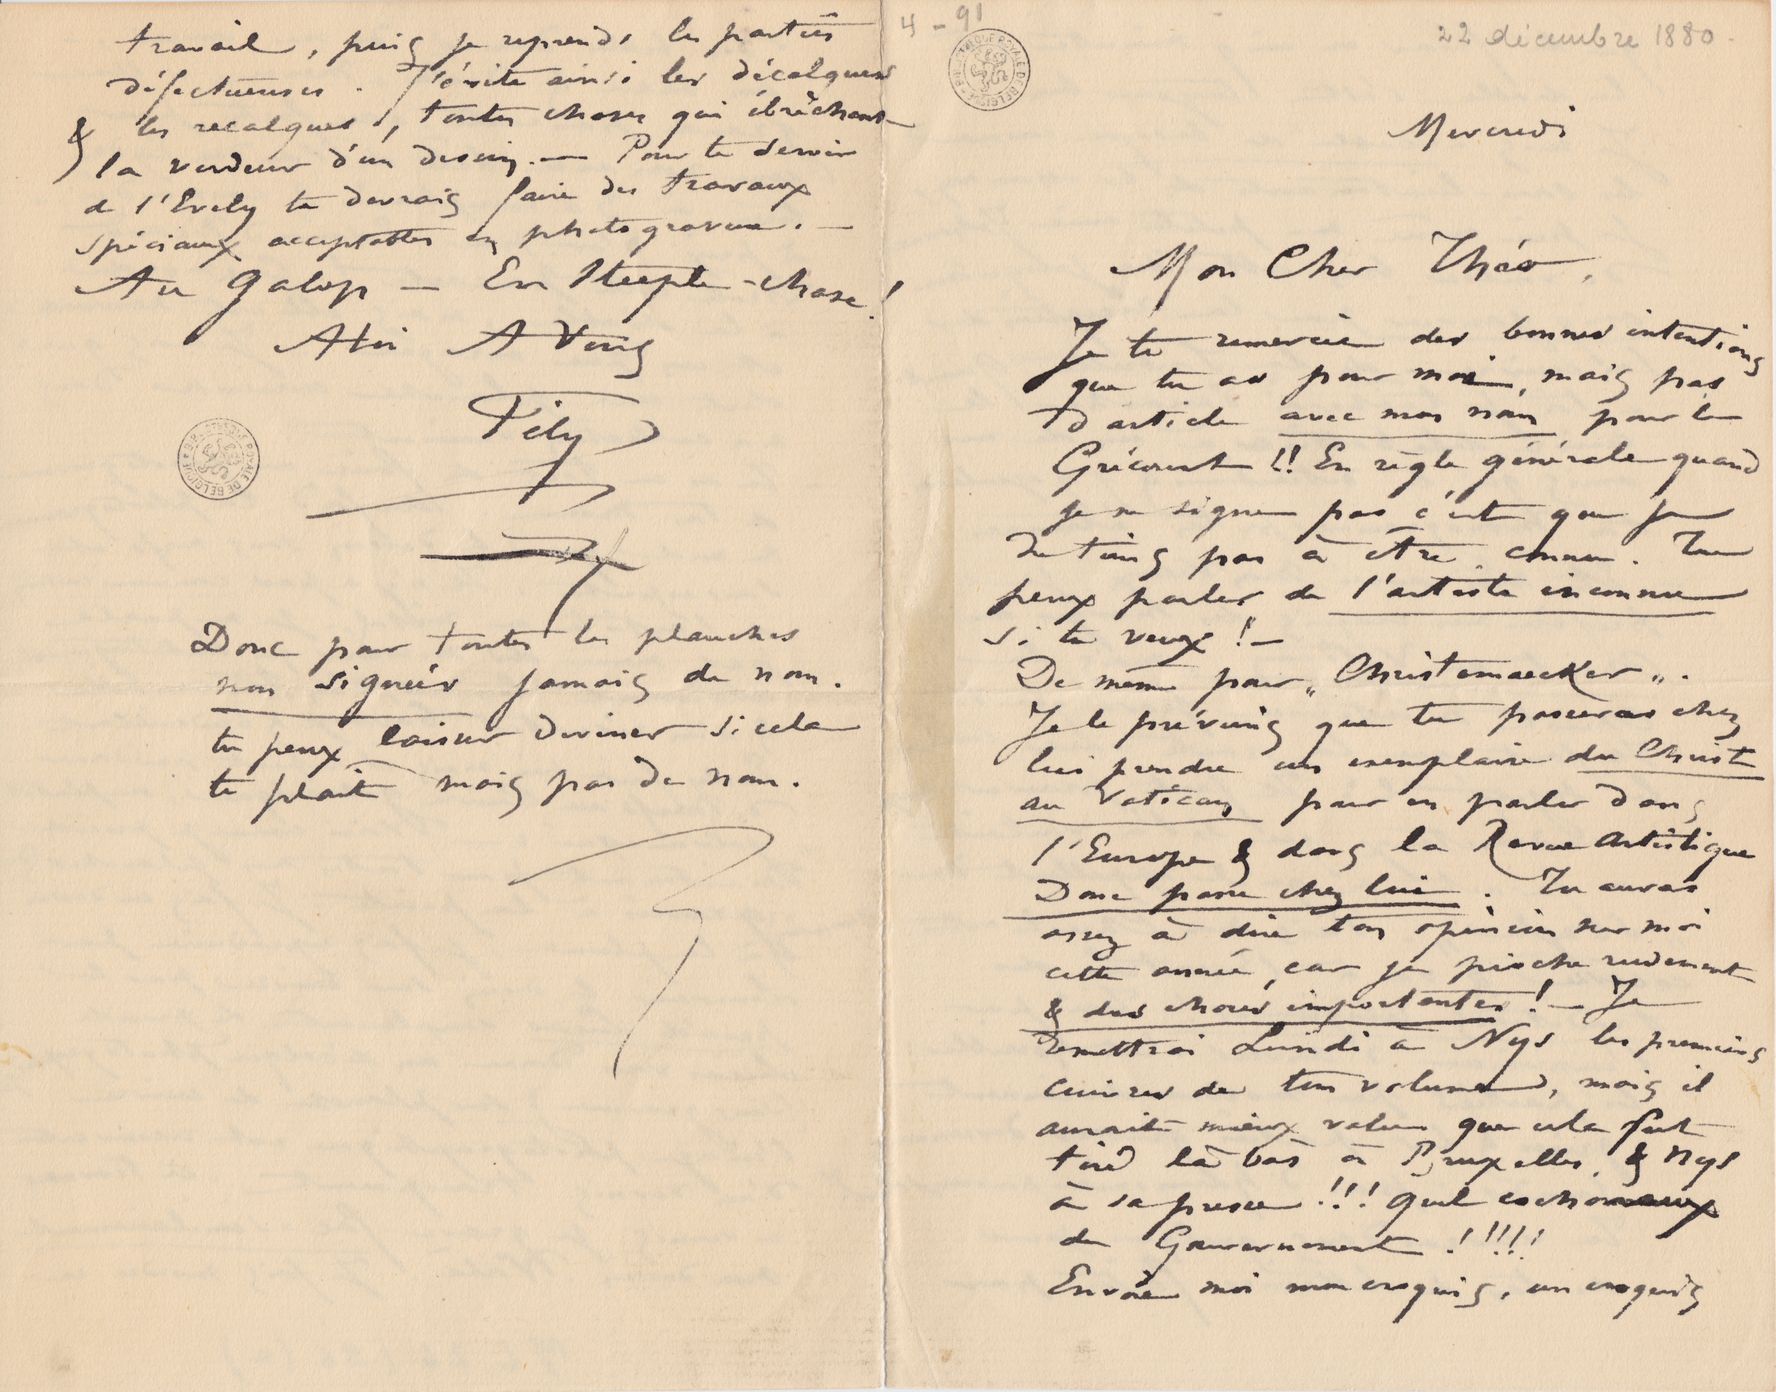 4 - 91
22 décembre 1880.
Mercredi
Mon Cher Théo,
Je te remercie des bonnes intentions
que tu as pour moi, mais pas
d'article avec mon nom pour le
Grécourt !! En règle générale quand
je ne signe pas c'est que je
ne tiens pas à être connu. Tu
peux parler de l'artiste inconnu
si tu veux ! —
De même pour „Christemaecker„.
Je le préviens que tu passeras chez
lui prendre un exemplaire du Christ
au Vatican pour en parler dans
l'Europe & dans la Revue Artistique
Donc passe chez lui. Tu auras
assez à dire ton opinion sur moi
cette année, car je pioche rudement
& des choses importantes ! — Je
remettrai Lundi à Nys les premiers
cuivres de ton volume, mais il
aurait mieux valu que cela fut
tiré là bas à Bruxelles, & Nys
à sa presse !!! Quel
de Gouvernement ! !!!!
Envoie moi mon croquis, un croquis
travail, puis je reprends les parties
défectueuses. J'évite ainsi les décalques
& les recalques, toutes choses qui ébrèchent
la verdeur d'un dessin. — Pour te servir
de l'Evely tu devrais faire des travaux
spéciaux acceptables en photogravure. —
Au Galop — En Steeple-chase !
A toi A Vous
Fély
Donc pour toutes les planches
non signées jamais de nom.
tu peux laisser deviner si cela
te plait mais pas de nom.
BIBLIOTHEQUE ROYALE DE BELGIQUE
BIBLIOTHEQUE ROYALE DE BELGIQUE